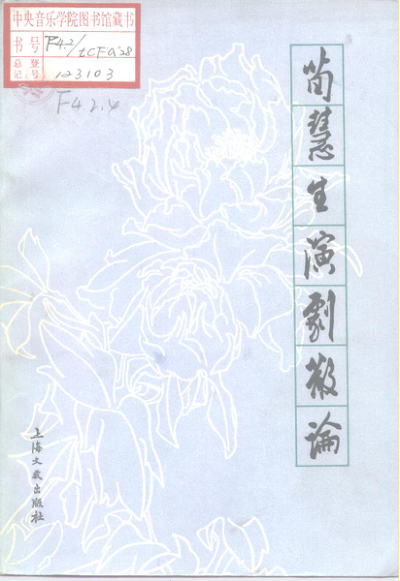 中央音乐学院图书馆藏书
书号 F4.2/tCFQ28
总登记号 123103
F42.4
荀慧生演劇散論
上海文艺出版社